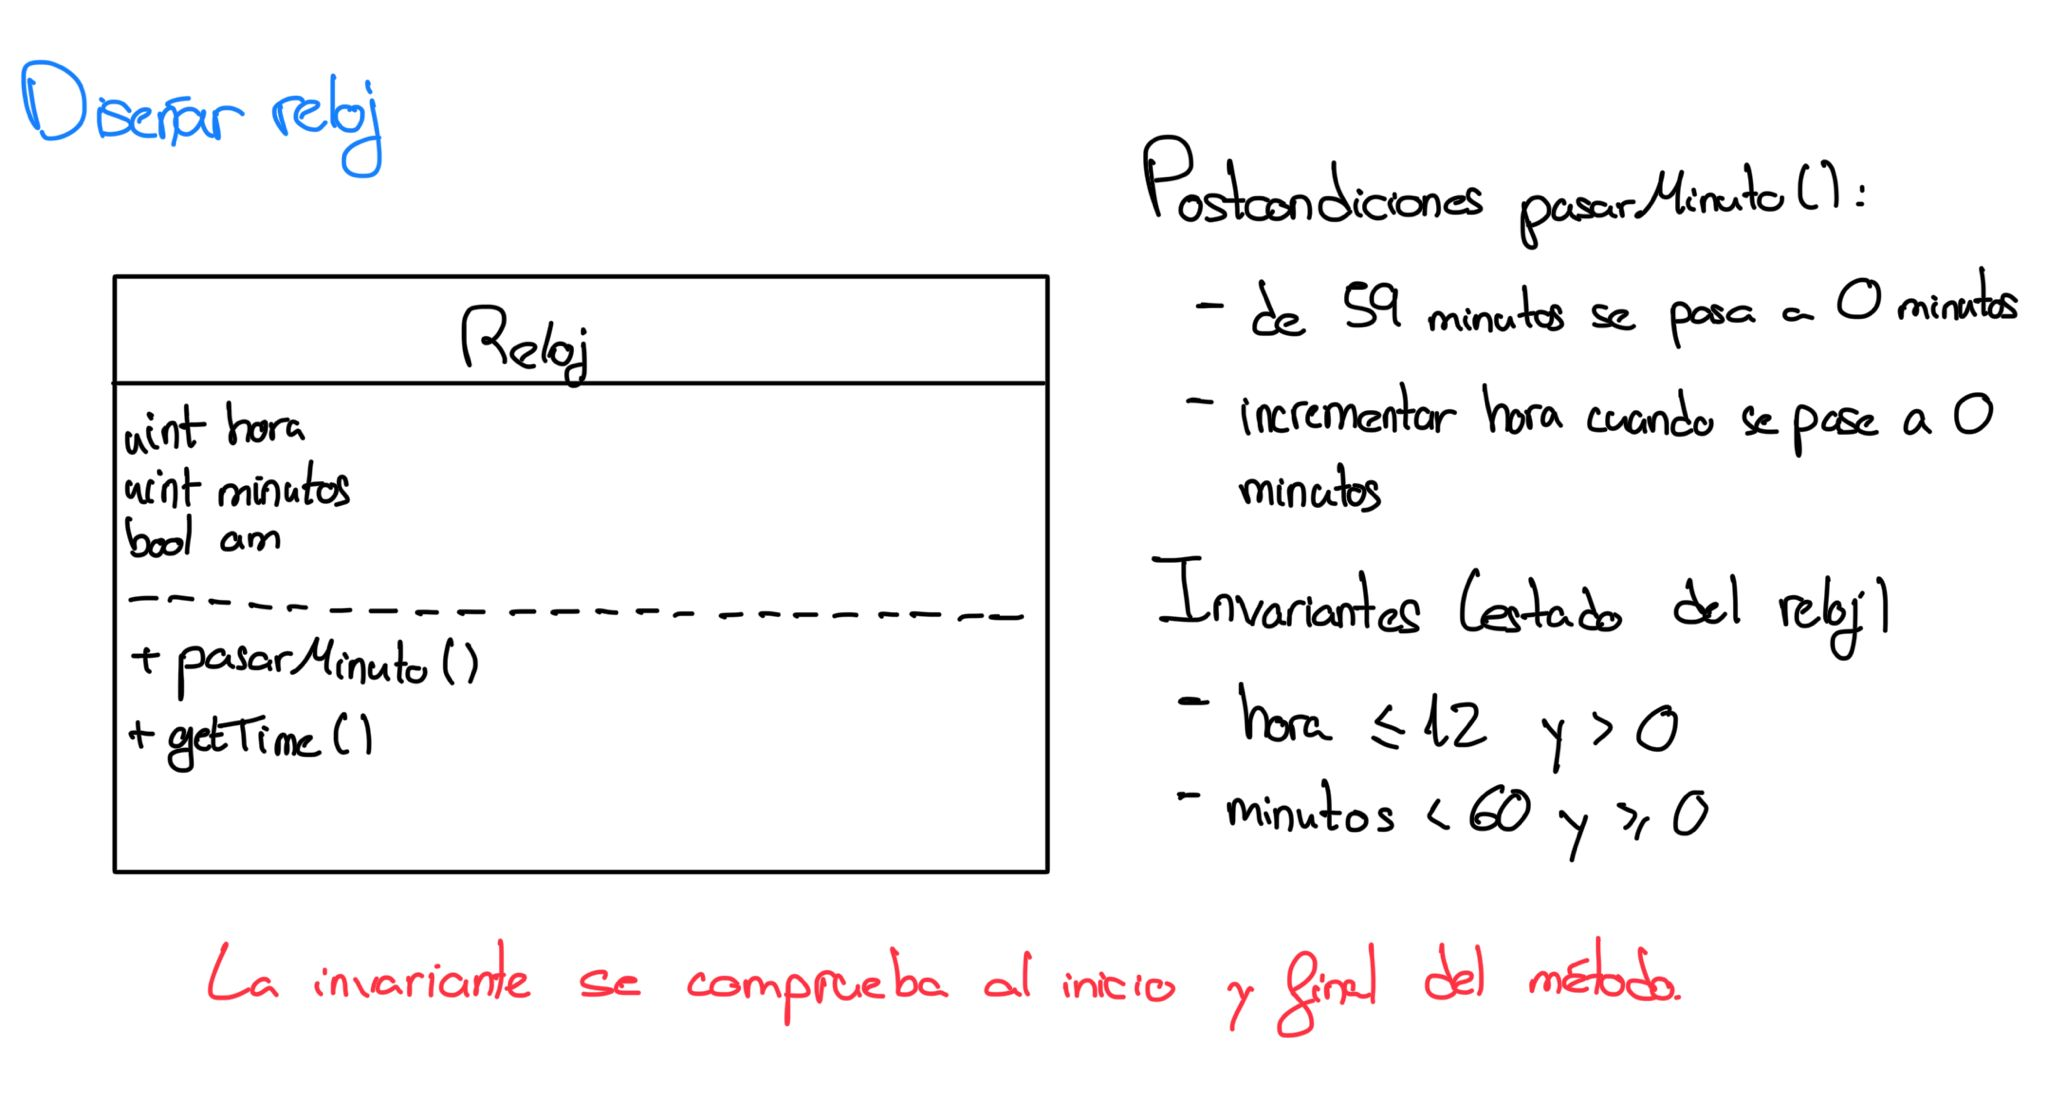 Diseñar reloj
Reloj
uint hora
uint minutos
bool am
+ pasarMinuto()
+ getTime()
Postcondiciones pasarMinuto():
- de 59 minutos se pasa a 0 minutos
- incrementar hora cuando se pase a 0
minutos
Invariantes (estado del reloj)
- hora ≤ 12 y > 0
- minutos < 60 y ≥ 0
La invariante se comprueba al inicio y final del método.